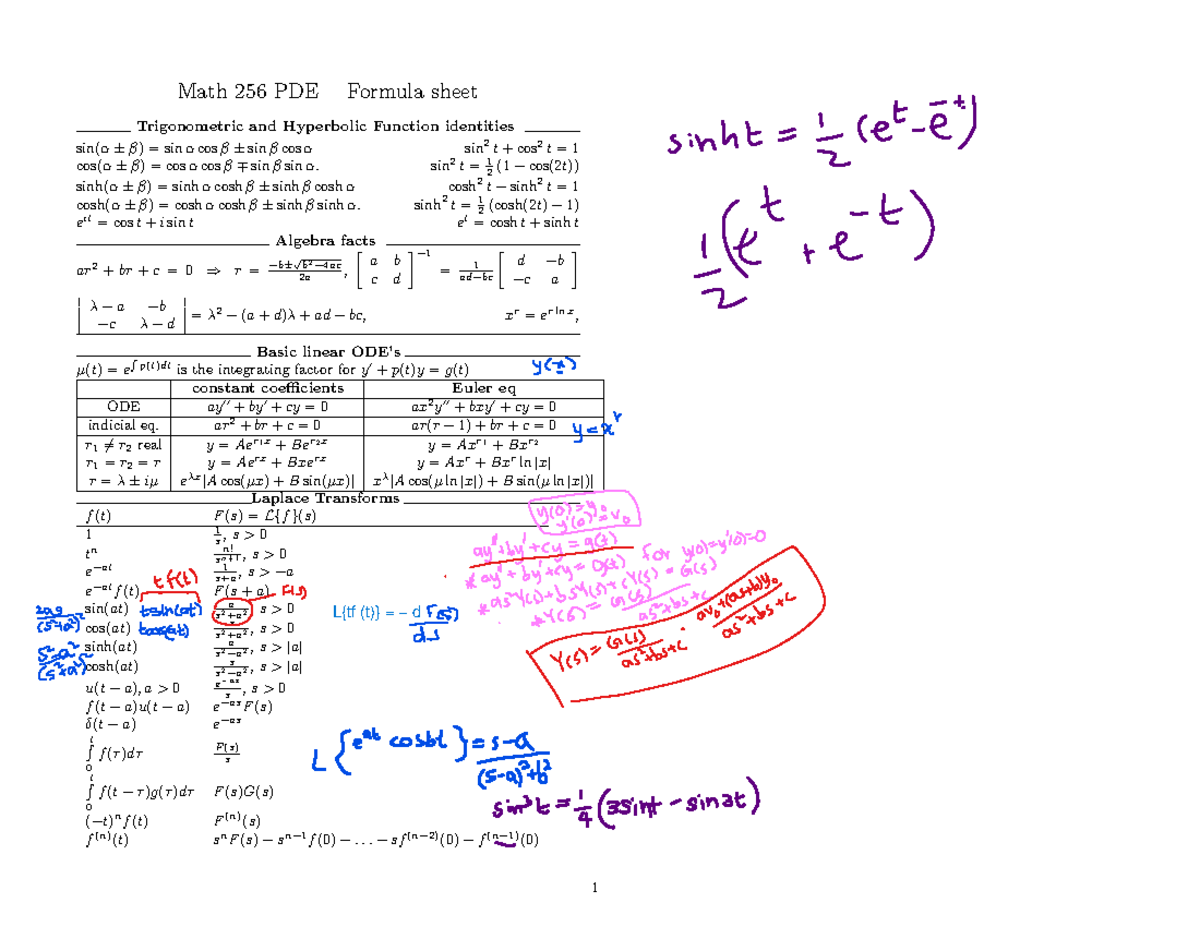 Math 256 PDE Formula sheet
Trigonometric and Hyperbolic Function identities
sin(α ± β) = sin α cos β ± sin β cos α sin² t + cos² t = 1
cos(α ± β) = cos α cos β ∓ sin β sin α. sin² t = 1/2 (1 − cos(2t))
sinh(α ± β) = sinh α cosh β ± sinh β cosh α cosh² t − sinh² t = 1
cosh(α ± β) = cosh α cosh β ± sinh β sinh α. sinh² t = 1/2 (cosh(2t) − 1)
e^{it} = cos t + i sin t e^t = cosh t + sinh t
sinh t = 1/2 (e^t - e^{-t})
1/2 (e^t + e^{-t})
Algebra facts
ar² + br + c = 0 ⇒ r = (−b±√(b²−4ac))/2a, [a b; c d]^{−1} = 1/(ad−bc) [d −b; −c a]
|λ − a −b; −c λ − d| = λ² − (a + d)λ + ad − bc, x^r = e^{r ln x},
Basic linear ODE's
μ(t) = e^{∫ p(t)dt} is the integrating factor for y′ + p(t)y = g(t)
y(x)
constant coefficients Euler eq
ODE ay″ + by′ + cy = 0 ax²y″ + bxy′ + cy = 0
indicial eq. ar² + br + c = 0 ar(r − 1) + br + c = 0
y = x^r
r₁ ≠ r₂ real y = Ae^{r₁x} + Be^{r₂x} y = Ax^{r₁} + Bx^{r₂}
r₁ = r₂ = r y = Ae^{rx} + Bxe^{rx} y = Ax^r + Bx^r ln |x|
r = λ ± iμ e^{λx}[A cos(μx) + B sin(μx)] x^λ[A cos(μ ln |x|) + B sin(μ ln |x|)]
Laplace Transforms
f(t) F(s) = L{f}(s)
1 1/s, s > 0
t^n n!/s^{n+1}, s > 0
e^{−at} 1/(s+a), s > −a
e^{−at}f(t) F(s + a)
tf(t) F(s)
sin(at) a/(s²+a²), s > 0
2as/(s²+a²)² tsin(at)
cos(at) s/(s²+a²), s > 0
s²-a²/(s²+a²)² tcos(at)
sinh(at) a/(s²−a²), s > |a|
cosh(at) s/(s²−a²), s > |a|
u(t − a), a > 0 e^{−as}/s, s > 0
f(t − a)u(t − a) e^{−as}F(s)
δ(t − a) e^{−as}
∫₀^t f(τ)dτ F(s)/s
∫₀^t f(t − τ)g(τ)dτ F(s)G(s)
(−t)^n f(t) F^{(n)}(s)
f^{(n)}(t) s^n F(s) − s^{n−1}f(0) − . . . − sf^{(n−2)}(0) − f^{(n−1)}(0)
y(0)=y₀
y'(0)=v₀
ay"+by'+cy = g(t)
* ay"+by'+cy = g(t) for y(0)=y'(0)=0
* as²Y(s)+bsY(s)+cY(s) = G(s)
* Y(s) = G(s)/(as²+bs+c)
L{tf (t)} = − d F(s)/ds
Y(s) = G(s)/(as²+bs+c) · (av₀+(as+b)y₀)/(as²+bs+c)
L{e^{at} cosbt} = s-a/((s-a)²+b²)
sin³t = 1/4 (3sint - sin3t)
1